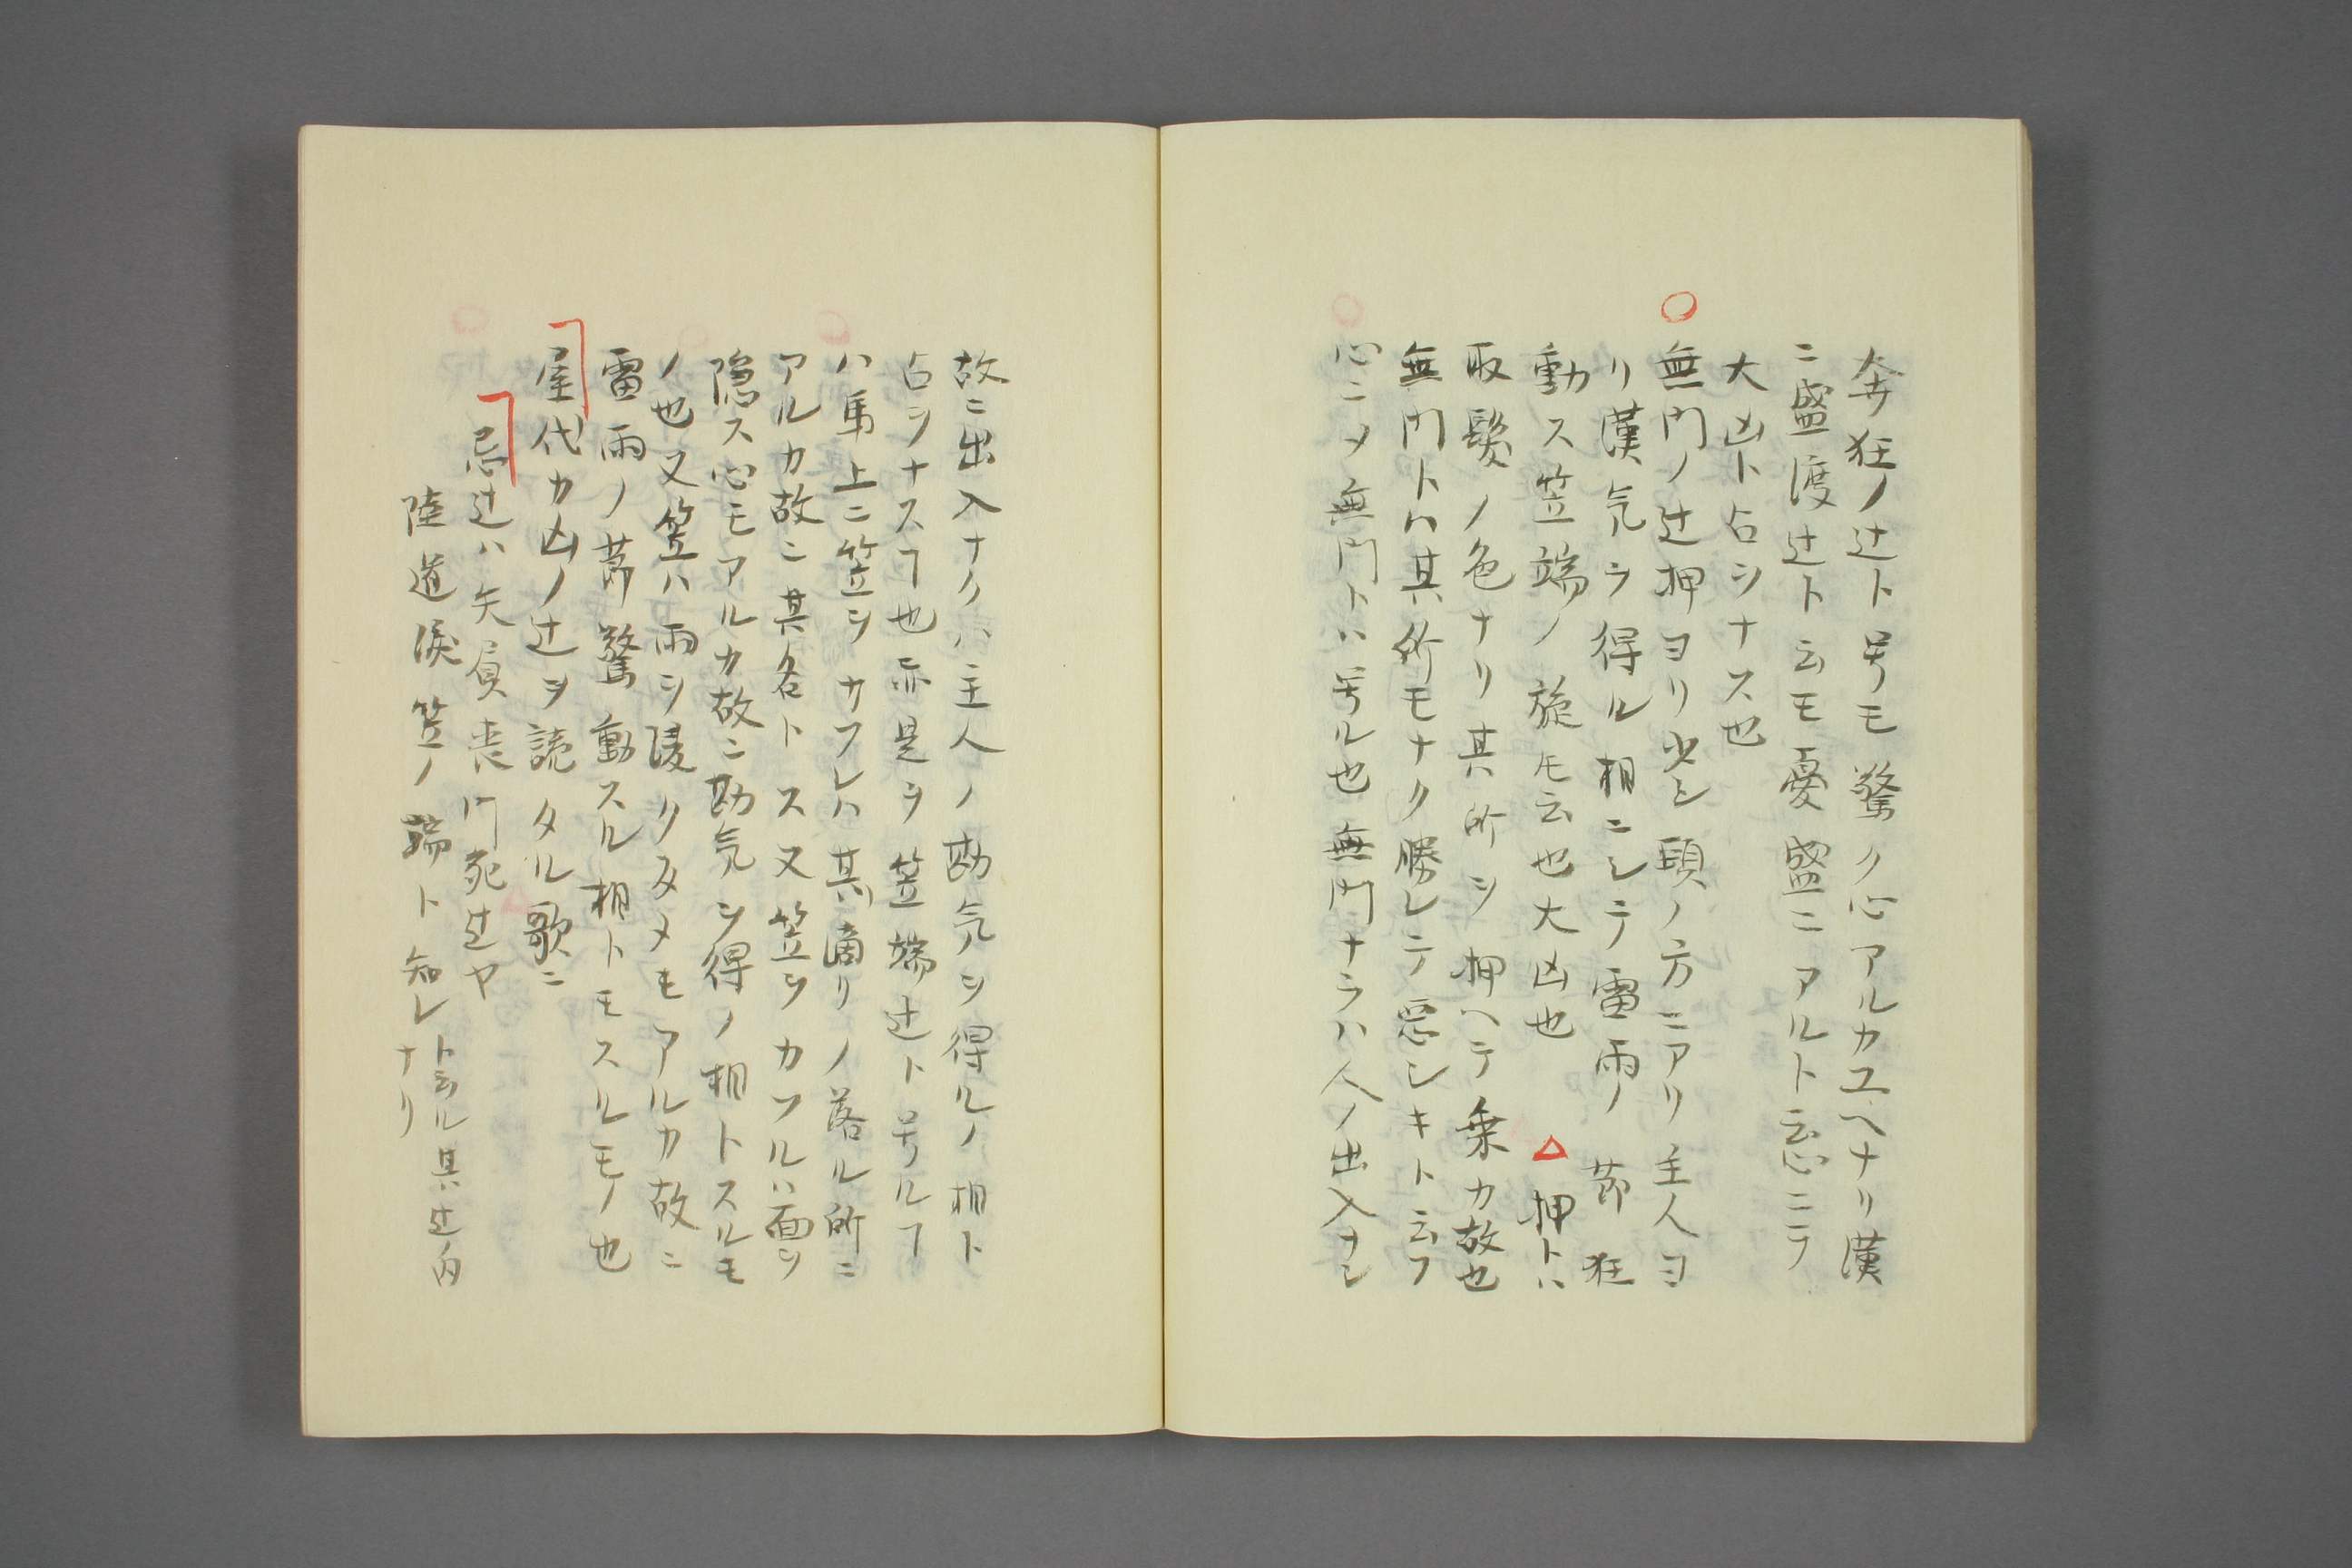 奔狂ノ辻ト号モ驚ク心アルカユヘナリ漢
ニ盛渡辻ト云モ憂盛ニアルト云心ニテ
大凶ト占シナス也
○無門ノ辻押ヨリ少シ頭ノ方ニアリ主人ヨ
リ漢気ヲ得ル相ニシテ雷雨ノ節狂
動ス笠端ノ旋モ云也大凶也 △押トハ
取髪ノ色ナリ其所ヲ押ヘテ乗カ故也
無門トハ其所モナク勝レテ悪シキト云フ
心ニメ無門トハ号ル也無門ナラハ人ノ出入ナシ
故ニ出入ナクハ主人ノ勘気ヲ得ルノ相ト
占ヲナスヿ也亦是ヲ笠端辻ト号ルヿ
ハ馬上ニ笠ヲカフレハ其滴リノ落ル所ニ
アルカ故ニ其名トス又笠ヲカフルハ面ヲ
隠ス心モアルカ故ニ勘気ヲ得ノ相トスルモ
ノ也又笠ハ雨ヲ凌クタメモアルカ故ニ
雷雨ノ節驚動スル相トモスルモノ也
屋代カ凶ノ辻ヲ読タル歌ニ
忌辻ハ矢負喪門死辻ヤ
陸道涙笠ノ端ト知レ
ト云ル其辻内
ナリ